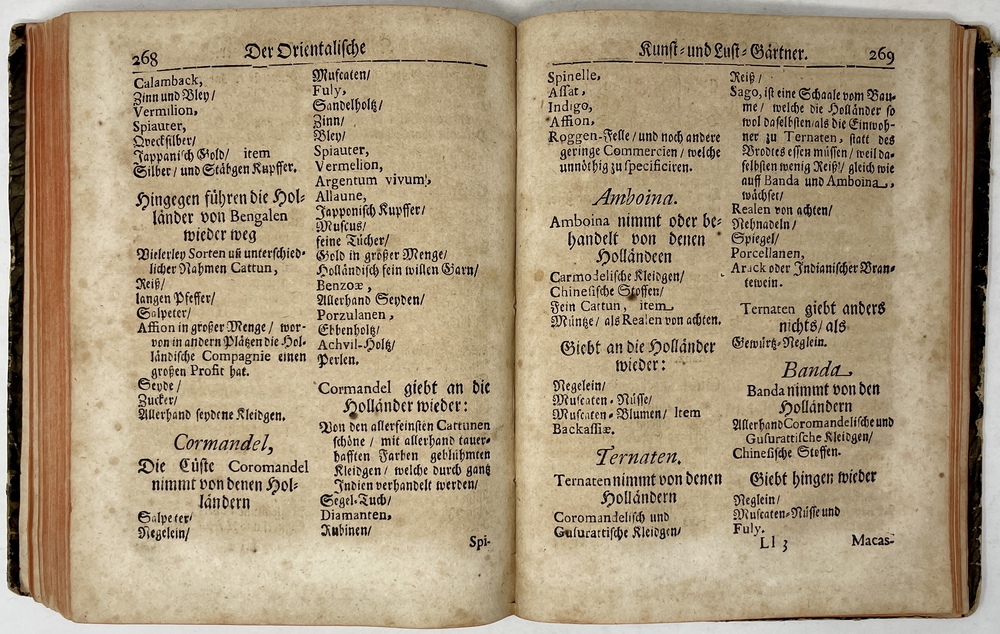 268
Der Orientalische
Calamback,
Zinn und Bley/
Vermilion,
Spiauter,
Qveckſilber/
Jappaniſch Gold/ item
Silber/ und Stäbgen Kupffer.
Hingegen führen die Hol-
länder von Bengalen
wieder weg
Vielerley Sorten uñ unterſchied-
licher Nahmen Cattun,
Reiß/
langen Pfeffer/
Salpeter/
Affion in groſſer Menge/ wor-
von in andern Plätzen die Hol-
ländiſche Compagnie einen
groſſen Profit hat.
Seyde/
Zucker/
Allerhand ſeydene Kleidgen.
Cormandel,
Die Cüſte Coromandel
nimmt von denen Hol-
ländern
Salpeter/
Negelein/
Muſcaten/
Fuly,
Sandelholtz/
Zinn/
Bley/
Spiauter,
Vermelion,
Argentum vivum,
Allaune,
Japponiſch Kupffer/
Muſcus/
feine Tücher/
Gold in groſſer Menge/
Holländiſch fein willen Garn/
Benzoæ,
Allerhand Seyden/
Porzulanen,
Ebbenholtz/
Achvil-Holtz/
Perlen.
Cormandel giebt an die
Holländer wieder:
Von den allerfeinſten Cattunen
ſchöne/ mit allerhand tauer-
hafften Farben geblühmten
Kleidgen/ welche durch gantz
Indien verhandelt werden/
Segel-Tuch/
Diamanten,
Rubinen/
Spi-
Kunſt- und Luſt-Gärtner.
269
Spinelle,
Aſſat,
Indigo,
Affion,
Roggen-Felle/ und noch andere
geringe Commercien/ welche
unnöthig zu ſpecificiren.
Amboina.
Amboina nimmt oder be-
handelt von denen
Holländeen
Carmodeliſche Kleidgen/
Chineſiſche Stoffen/
Fein Cattun, item
Müntze/ als Realen von achten.
Giebt an die Holländer
wieder:
Negelein/
Muſcaten-Nüſſe/
Muſcaten-Blumen/ Item
Backaſſiæ.
Ternaten.
Ternaten nimmt von denen
Holländern
Coromandeliſch und
Guſurattiſche Kleidgen/
Reiß/
Sago, iſt eine Schaale vom Bau-
me/ welche die Holländer ſo
wol daſelbſten/ als die Einwoh-
ner zu Ternaten, ſtatt des
Brodtes eſſen müſſen/ weil da-
ſelbſten wenig Reiß/ gleich wie
auff Banda und Amboina,
wächſet/
Realen von achten/
Nehnadeln/
Spiegel/
Porcellanen,
Arack oder Indianiſcher Bran-
tewein.
Ternaten giebt anders
nichts/ als
Gewürtz-Neglein.
Banda
Banda nimmt von den
Holländern
Allerhand Coromandeliſche und
Guſurattiſche Kleidgen/
Chineſiſche Stoffen.
Giebt hingen wieder
Neglein/
Muſcaten-Nüſſe und
Fuly.
Ll 3
Macas-